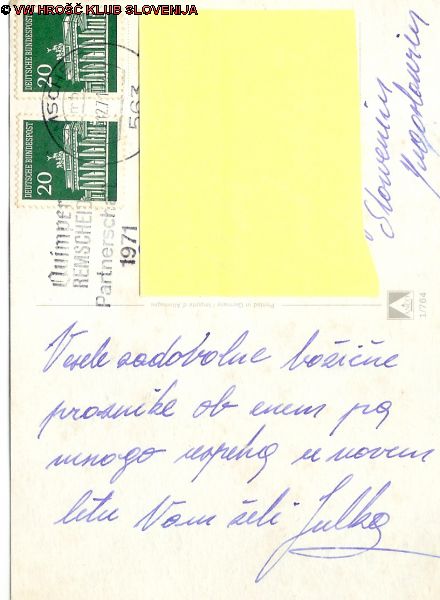 © VW HROŠČ KLUB SLOVENIJA
DEUTSCHE BUNDESPOST
20
DEUTSCHE BUNDESPOST
20
563
Quimper
REMSCHEID
Partnerscha
1971
Slowenien
Jugoslawien
Printed in Germany / Imprimé d'Allemagne
1/764
Vesele zadobolne božične
praznike ob enem pa
mnogo uspeha u novem
letu Vam želi Julka